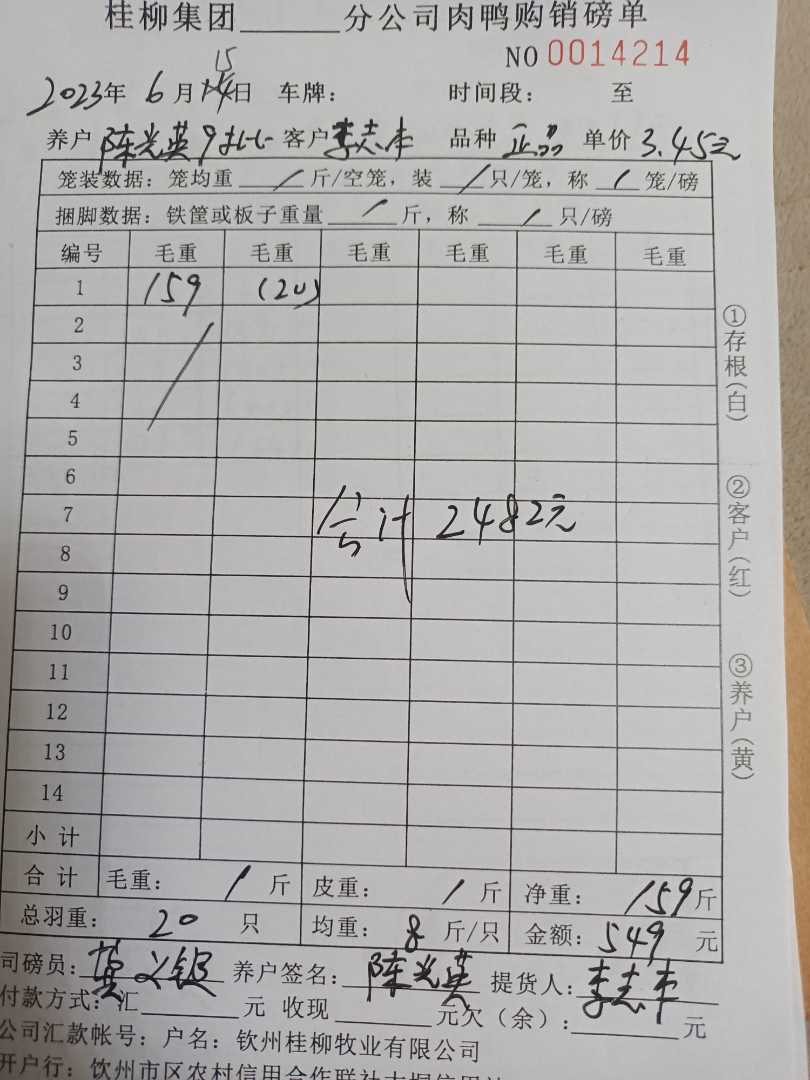 桂柳集团______分公司肉鸭购销磅单
NO 0014214
2023年 6月 15日 车牌: 时间段: 至
养户 陈光英 客户 李志丰 品种 正品 单价 3.45元
笼装数据: 笼均重 / 斤/空笼, 装 / 只/笼, 称 / 笼/磅
捆脚数据: 铁筐或板子重量 / 斤, 称 / 只/磅
编号 毛重 毛重 毛重 毛重 毛重 毛重
1 159 (20)
2
3
4
5
6
7 合计 2482元
8
9
10
11
12
13
14
小计
合计 毛重: / 斤 皮重: / 斤 净重: 159斤
总羽重: 20 只 均重: 8 斤/只 金额: 549 元
司磅员: 养户签名: 陈光英 提货人: 李志丰
付款方式: 汇______元 收现______元欠(余):______元
公司汇款帐号: 户名: 钦州桂柳牧业有限公司
开户行: 钦州市区农村信用合作联社大垌信用社
①存根(白)
②客户(红)
③养户(黄)